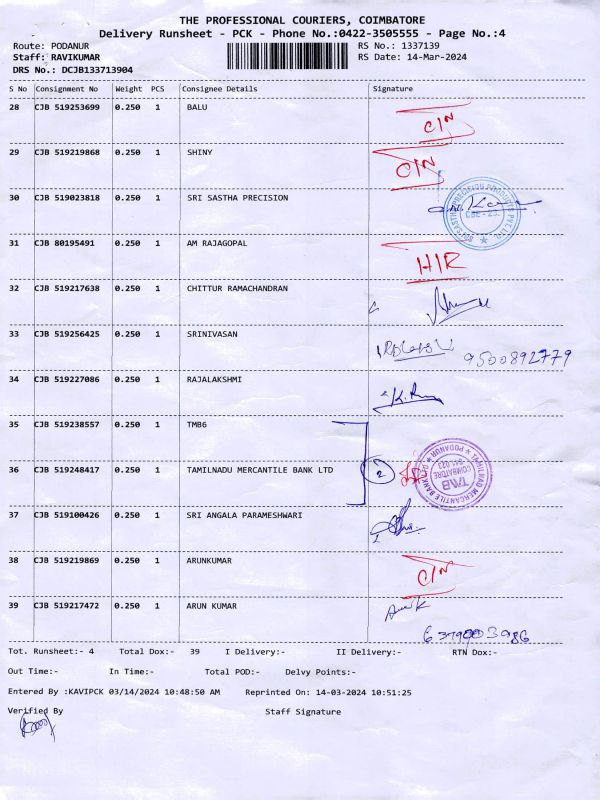 THE PROFESSIONAL COURIERS, COIMBATORE
Delivery Runsheet - PCK - Phone No.:0422-3505555 - Page No.:4
Route: PODANUR RS No.: 1337139
Staff: RAVIKUMAR RS Date: 14-Mar-2024
DRS No.: DCJB133713904
S No Consignment No Weight PCS Consignee Details Signature
28 CJB 519253699 0.250 1 BALU C/N
29 CJB 519219868 0.250 1 SHINY C/N
30 CJB 519023818 0.250 1 SRI SASTHA PRECISION
31 CJB 80195491 0.250 1 AM RAJAGOPAL H/R
32 CJB 519217638 0.250 1 CHITTUR RAMACHANDRAN
33 CJB 519256425 0.250 1 SRINIVASAN 9500892779
34 CJB 519227086 0.250 1 RAJALAKSHMI
35 CJB 519238557 0.250 1 TMB6
36 CJB 519248417 0.250 1 TAMILNADU MERCANTILE BANK LTD 2
TAMILNAD MERCANTILE BANK
PODANUR
TMB
COIMBATORE
641 023
37 CJB 519100426 0.250 1 SRI ANGALA PARAMESHWARI
38 CJB 519219869 0.250 1 ARUNKUMAR C/N
39 CJB 519217472 0.250 1 ARUN KUMAR
6379003986
Tot. Runsheet:- 4 Total Dox:- 39 I Delivery:- II Delivery:- RTN Dox:-
Out Time:- In Time:- Total POD:- Delvy Points:-
Entered By :KAVIPCK 03/14/2024 10:48:50 AM Reprinted On: 14-03-2024 10:51:25
Verified By Staff Signature